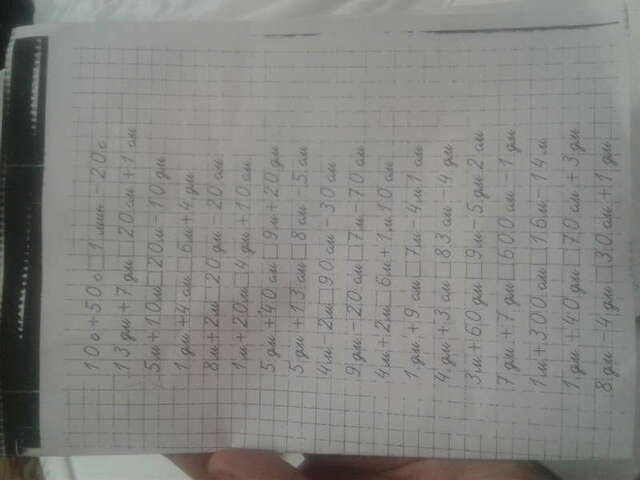 10с+50с□1мин-20с
13дм+7дм□20см+1см
5м+10м□20м-10дм
1дм+4см□6м+4дм
8м+2м□20дм-20см
1м+20м□4дм+10см
5дм+40см□9м+20дм
5дм+13см□8см-5см
4м-2м□90см-30см
9дм-20см□7м-70см
4м+2м□6м+1м10см
1дм+9см□7м-4м1см
4дм+3см□83см-4дм
3м+60дм□9м-5дм2см
7дм+7дм□600см-1дм
1м+300см□16м-14м
1дм+40дм□70см+3дм
8дм-4дм□30см+1дм